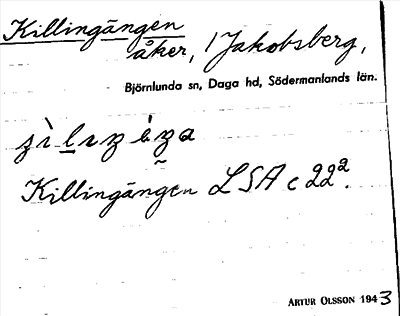 Killingängen
åker, / Jakobsberg,
Björnlunda sn, Daga hd, Södermanlands län.
Killingängen LSA c 22²
ARTUR OLSSON 1943